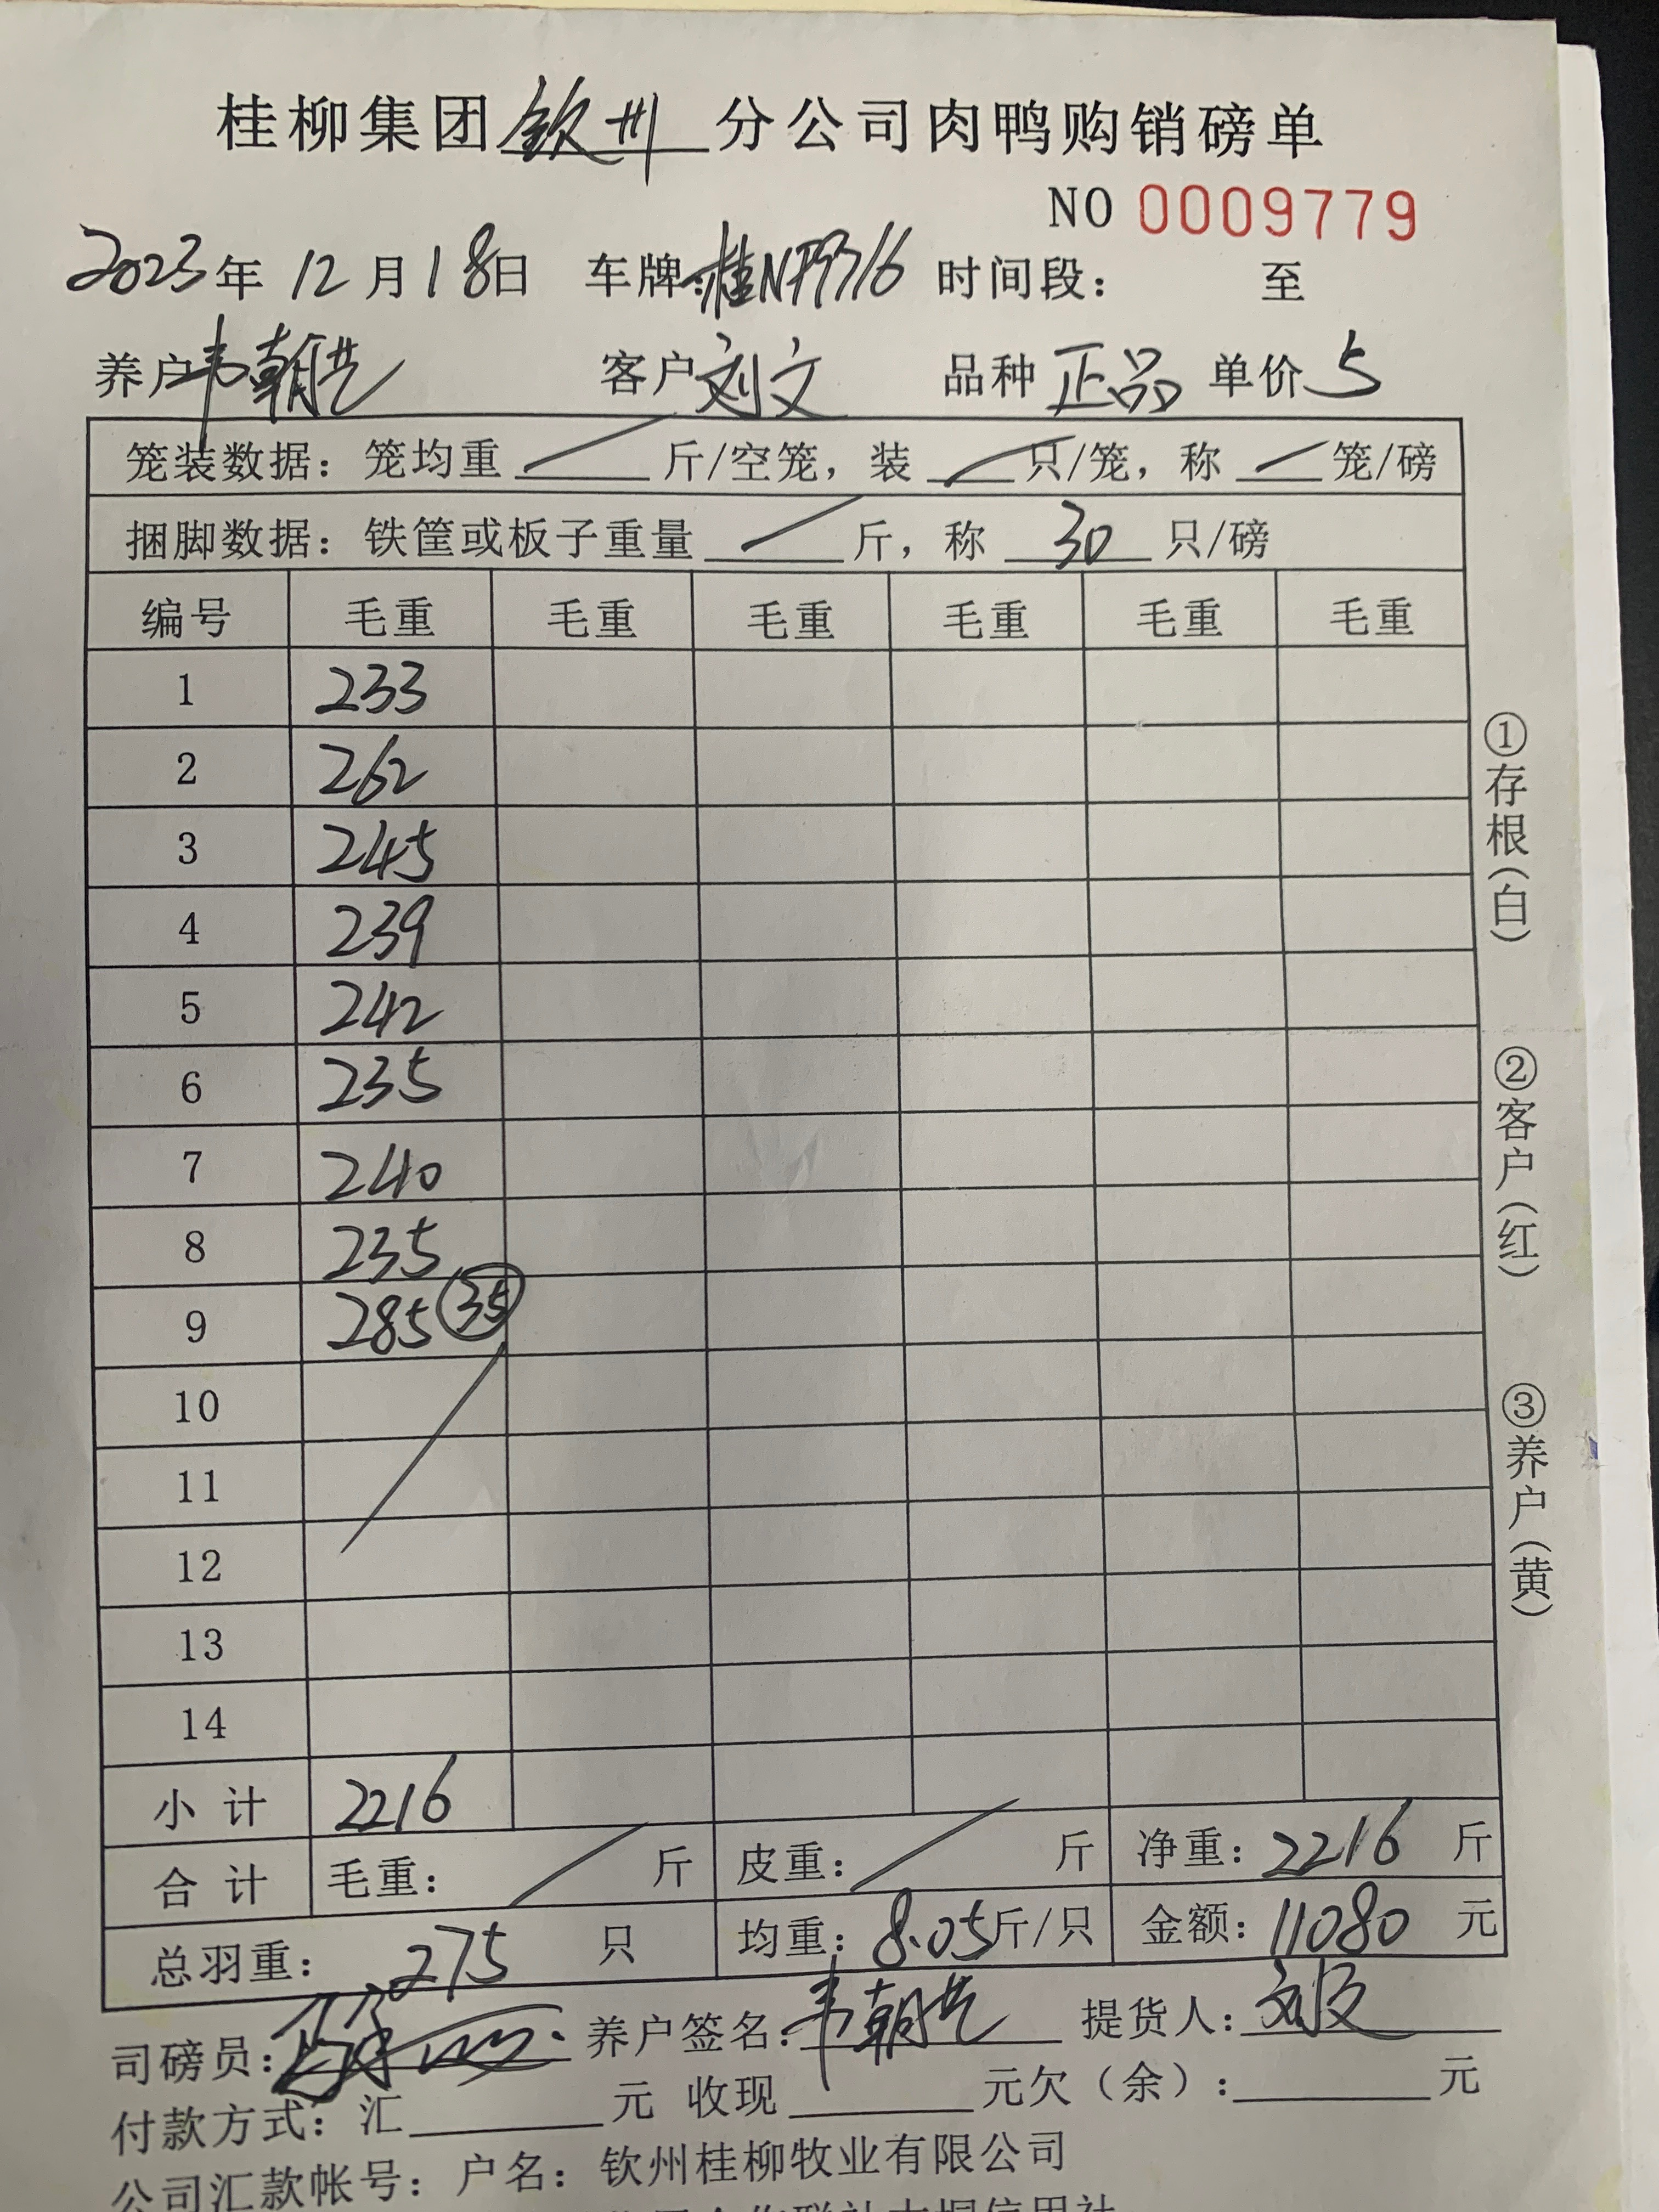 桂柳集团钦州分公司肉鸭购销磅单
NO 0009779
2023年12月18日 车牌:桂NF9716 时间段: 至
养户韦朝先 客户刘文 品种正品 单价5
笼装数据: 笼均重 / 斤/空笼, 装 / 只/笼, 称 / 笼/磅
捆脚数据: 铁筐或板子重量 / 斤, 称 30 只/磅
编号 毛重 毛重 毛重 毛重 毛重 毛重
1 233
2 262
3 245
4 239
5 242
6 235
7 240
8 235
9 285 35
10
11
12
13
14
小计 2216
合计 毛重: / 斤 皮重: / 斤 净重: 2216 斤
总羽重: 275 只 均重: 8.05斤/只 金额: 11080 元
司磅员: 养户签名: 韦朝先 提货人: 刘文
付款方式: 汇 元 收现 元欠(余): 元
公司汇款帐号: 户名: 钦州桂柳牧业有限公司
①存根(白)
②客户(红)
③养户(黄)